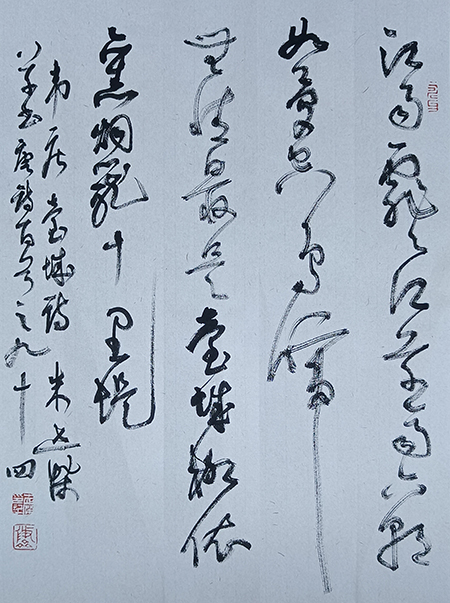 江雨霏々江草齊六朝
如夢空鳥啼
無情最是臺城柳依
舊烟籠十里堤
韋莊臺城詩 朱
草書唐詩百首之九十四